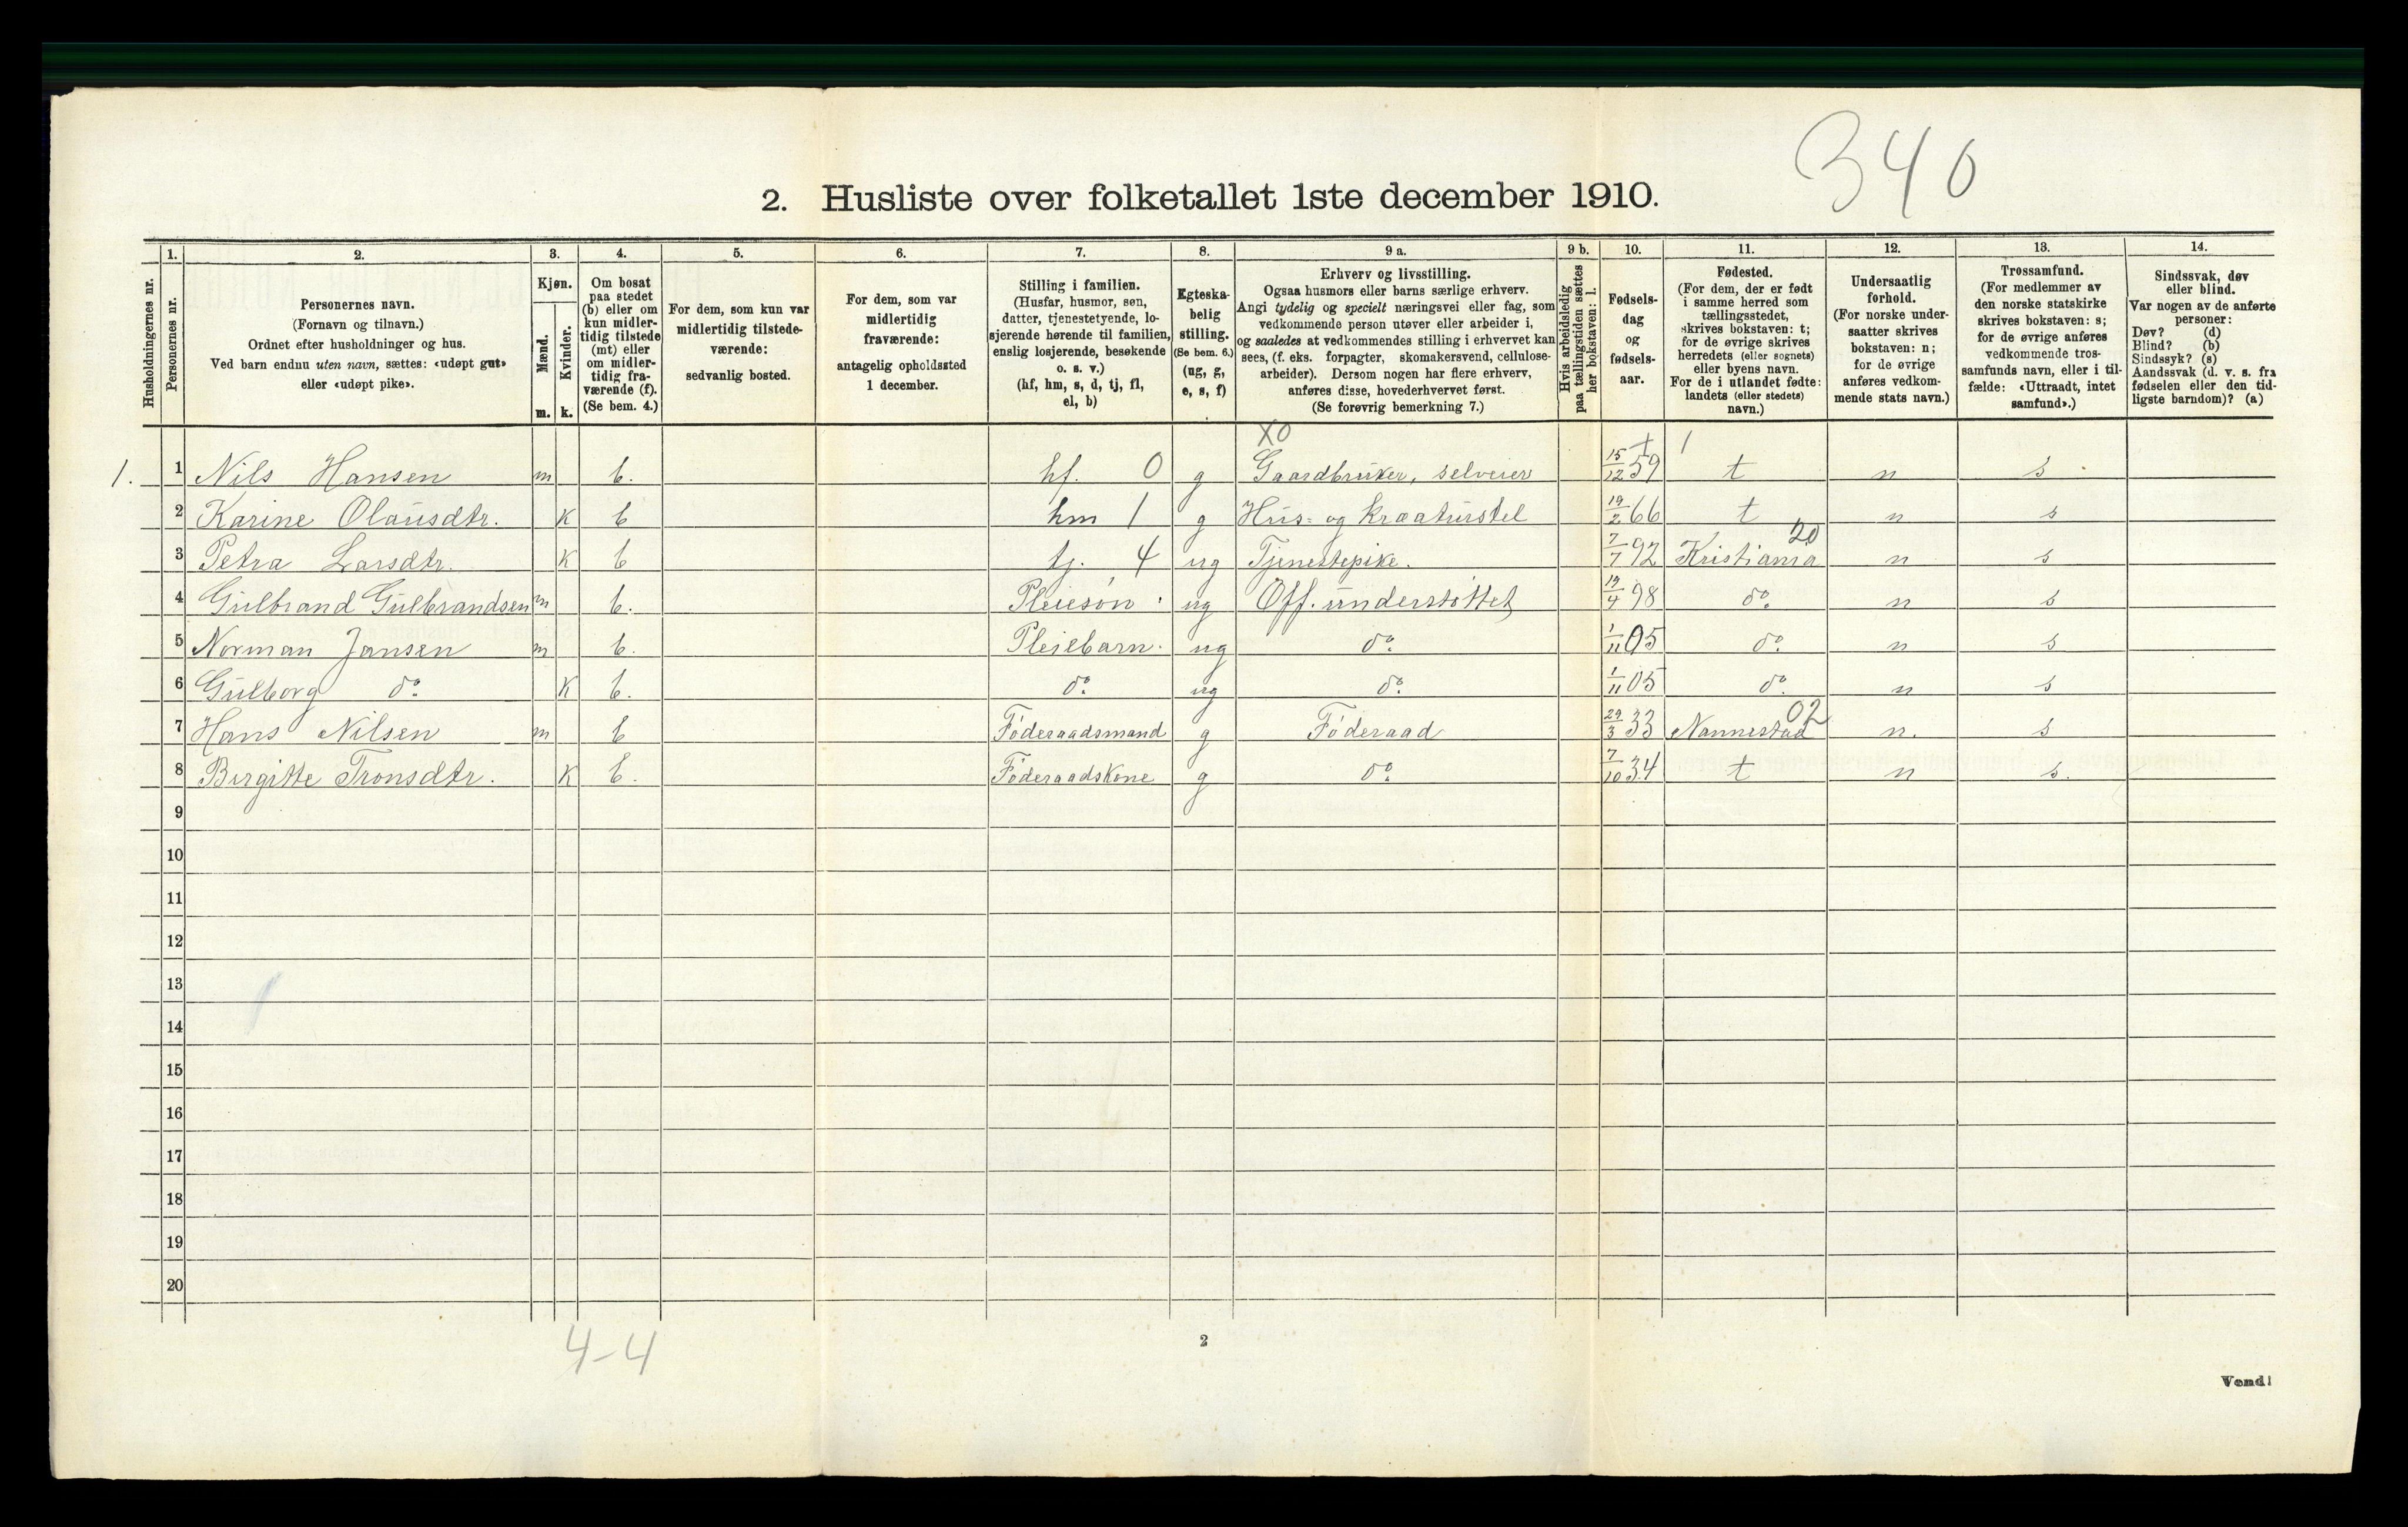 340
2. Husliste over folketallet 1ste december 1910.
Husholdningernes nr.
1.
Personernes nr.
2.
Personernes navn.
(Fornavn og tilnavn.)
Ordnet efter husholdninger og hus.
Ved barn endnu uten navn, sættes: «udøpt gut»
eller «udøpt pike».
3.
Kjøn.
Mænd.
m.
Kvinder.
k.
4.
Om bosat
paa stedet
(b) eller om
kun midler-
tidig tilstede
(mt) eller
om midler-
tidig fra-
værende (f).
(Se bem. 4.)
5.
For dem, som kun var
midlertidig tilstede-
værende:
sedvanlig bosted.
6.
For dem, som var
midlertidig
fraværende:
antagelig opholdssted
1 december.
7.
Stilling i familien.
(Husfar, husmor, søn,
datter, tjenestetyende, lo-
sjerende hørende til familien,
enslig losjerende, besøkende
o. s. v.)
(hf, hm, s, d, tj, fl,
el, b)
8.
Egteska-
belig
stilling.
(Se bem. 6.)
(ug, g,
e, s, f)
9 a.
Erhverv og livsstilling.
Ogsaa husmors eller barns særlige erhverv.
Angi tydelig og specielt næringsvei eller fag, som
vedkommende person utøver eller arbeider i,
og saaledes at vedkommendes stilling i erhvervet kan
sees, (f. eks. forpagter, skomakersvend, cellulose-
arbeider). Dersom nogen har flere erhverv,
anføres disse, hovederhvervet først.
(Se forøvrig bemerkning 7.)
9 b.
Hvis arbeidsledig
paa tællingstiden sættes
her bokstaven: l.
10.
Fødsels-
dag
og
fødsels-
aar.
11.
Fødested.
(For dem, der er født
i samme herred som
tællingsstedet,
skrives bokstaven: t;
for de øvrige skrives
herredets (eller sognets)
eller byens navn.
For de i utlandet fødte:
landets (eller stedets)
navn.)
12.
Undersaatlig
forhold.
(For norske under-
saatter skrives
bokstaven: n;
for de øvrige
anføres vedkom-
mende stats navn.)
13.
Trossamfund.
(For medlemmer av
den norske statskirke
skrives bokstaven: s;
for de øvrige anføres
vedkommende tros-
samfunds navn, eller i til-
fælde: «Uttraadt, intet
samfund».)
14.
Sindssvak, døv
eller blind.
Var nogen av de anførte
personer:
Døv? (d)
Blind? (b)
Sindssyk? (s)
Aandssvak (d. v. s. fra
fødselen eller den tid-
ligste barndom)? (a)
X0 t 1
1. 1 Nils Hansen m b. hf. 0 g Gaardbruker, selveier 15/12 59 t n s
2 Karine Olausdtr. k b hm 1 g Hus- og kreaturstel 19/2 66 t n s
3 Petra Larsdtr. k b tj. 4 ug Tjenestepike. 7/7 92 Kristiania 20 n s
4 Gulbrand Gulbrandsen m b. Pleiesøn ug Off. understøttet 19/4 98 do. n s
5 Norman Jansen m b. Pleiebarn ug do. 1/11 05 do. n s
6 Gulborg do. k b. do. ug do. 1/11 05 do. n s
7 Hans Nilsen m b Føderaadsmand g Føderaad 29/3 33 Nannestad 02 n. s
8 Birgitte Tronsdtr. k b. Føderaadskone g do. 7/10 34 t n s.
9
10
11
12
13
14
15
16
17
18
19
20
4-4
2
Vend!